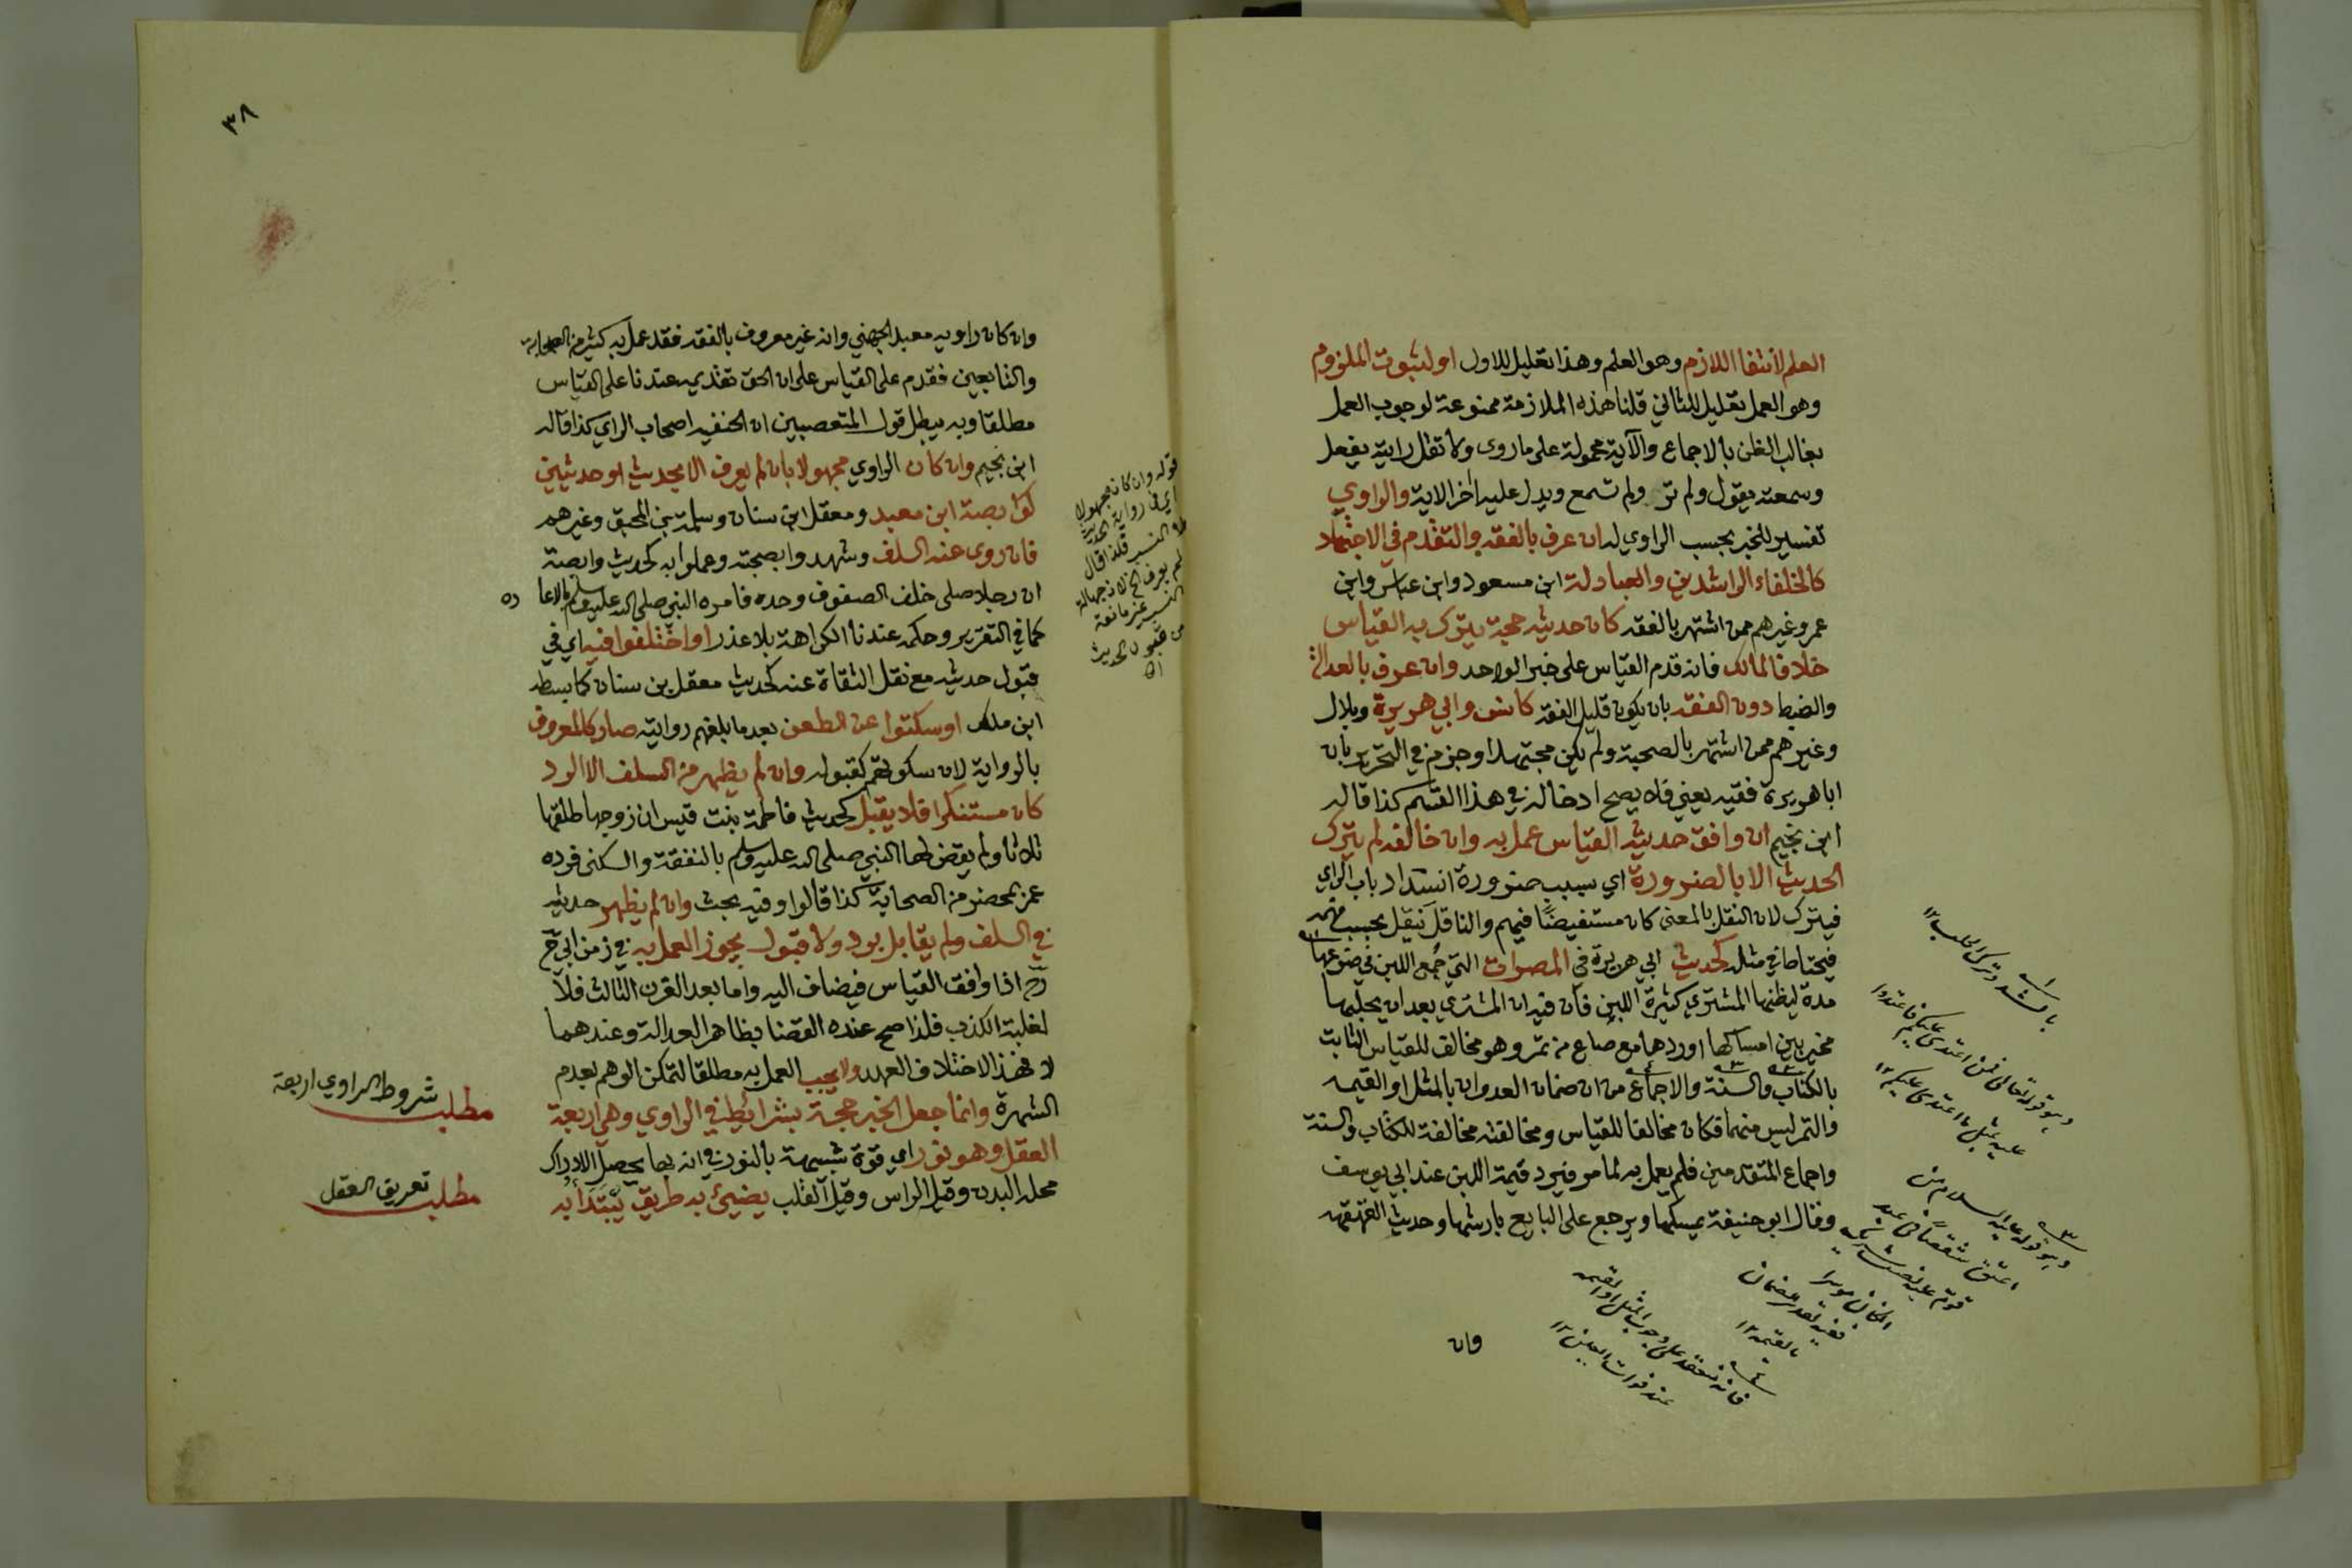 العلم لانتفا اللازم وهو العلم وهذا تعليل للاول او لثبوت الملزوم
وهو العمل تعليل للثاني قلنا هذه الملازمة ممنوعة لوجوب العمل
بغالب الظن بالاجماع والآية محمولة على ما روى ولا تقل رايته يفعل
وسمعته يقول ولم تر ولم تسمع ويدل عليه اخر الاية والراوي
تفسير للخبر بحسب الراوي له ان عرف بالفقه والتقدم في الاجتهاد
كالخلفاء الراشدين والعبادلة ابن مسعود وابن عباس وابن
عمر وغيرهم ممن اشتهر بالفقه كان حديثه حجة يترك به القياس
خلافا لمالك فانه قدم القياس على خبر الواحد وان عرف بالعدالة
والضبط دون الفقه بان يكون قليل الفقه كانس وابي هريرة وبلال
وغيرهم ممن اشتهر بالصحبة ولم يكن مجتهدا وجزم في التحرير بان
ابا هريرة فقيه يعني فلا يصح ادخاله في هذا القسم كذا قاله
ابن نجيم ان وافق حديثه القياس عمل به وان خالفه لم يترك
الحديث الا بالضرورة اي بسبب ضرورة انسداد باب الراي
فيترك لان النقل بالمعنى كان مستفيضًا فيهم والناقل ينقل بحسب فهمه
فيحتاط في مثله كحديث ابي هريرة في المصراة التي جُمع اللبن في ضرعها
مدة ليظنها المشتري كثيرة اللبن فان فيه ان المشتري بعد ان يحلبها
مخير بين امساكها او ردها مع صاع من تمر وهو مخالف للقياس الثابت
بالكتاب والسنة والاجماع من ان ضمان العدوان بالمثل او القيمه
والتمر ليس منهما فكان مخالفا للقياس ومخالفته مخالفة للكتاب والسنة
واجماع المتقدمين فلم يعمل به لما مر فيرد قيمة اللبن عند ابي يوسف
وقال ابو حنيفة يمسكها ويرجع على البايع بارشها وحديث القهقهه
وان
بالشد وترك الحلب ١٢
وهو قوله تعالى فمن اعتدى عليكم فاعتدوا
عليه بمثل ما اعتدى عليكم ١٢
وهو قوله عليه السلام من
اعتق شقصًا في عبد
قوم عليه نصيب شريكه
ان كان موسرا
ففيه تقدير الضمان
بالقيمه ١٢
فانه منعقد على وجوب المثل او القيمه
عند فوات العين ١٢
٣٨
وان كان راويه معبد الجهني وانه غير معروف بالفقه فقد عمل به كثير من الصحابة
والتابعين فقدم على القياس على ان الحق تقديمه عندنا على القياس
مطلقا وبه يبطل قول المتعصبين ان الحنفيه اصحاب الراي كذا قاله
ابن نجيم وان كان الراوي مجهولا بان لم يعرف الا بحديث او حديثين
كوابصة ابن معبد ومعقل ابن سنان وسلمة بن المحبق وغيرهم
فان روى عنه السلف وشهدوا بصحته وعملوا به كحديث وابصة
ان رجلا صلى خلف الصفوف وحده فامره النبي صلى الله عليه وسلم بالاعا ده
كما في التقرير وحكمه عندنا الكراهة بلا عذر او اختلفوا فيه اي في
قبول حديثه مع نقل الثقاة عنه كحديث معقل بن سنان كما بسطه
ابن ملك او سكتوا عن الطعن بعد ما بلغهم روايته صار كالمعروف
بالرواية لان سكوتهم كقبوله وان لم يظهر من السلف الا الرد
كان مستنكرا فلا يقبل كحديث فاطمة بنت قيس ان زوجها طلقها
ثلاثا ولم يقض لها النبي صلى الله عليه وسلم بالنفقة والسكنى فرده
عمر بمحضر من الصحابة كذا قالوا وفيه بحث وان لم يظهر حديثه
في السلف ولم يقابل برد ولا قبول يجوز العمل به في زمن ابي ح
رح اذا وافق القياس فيضاف اليه واما بعد القرن الثالث فلا
لغلبة الكذب فلذا صح عنده القضا بظاهر العدالة وعندهما
لا فهذا لاختلاف العهد ولا يجب العمل به مطلقا لتمكن الوهم بعدم
الشهرة وانما جعل الخبر حجة بشرائط في الراوي وهي اربعة
العقل وهو نور اي قوة شبيهة بالنور في انه بها يحصل الادراك
محله البدن وقيل الراس وقيل القلب يضيئ به طريق يُبْتَدَأُ به
قوله وان كان مجهولا
اي في رواية الحديث
لا النسب فلذا قال
لم يعرف الخ لان جهالة
النسب غير مانعة
من قبول الحديث
مطلب شروط الراوي اربعة
مطلب تعريف العقل